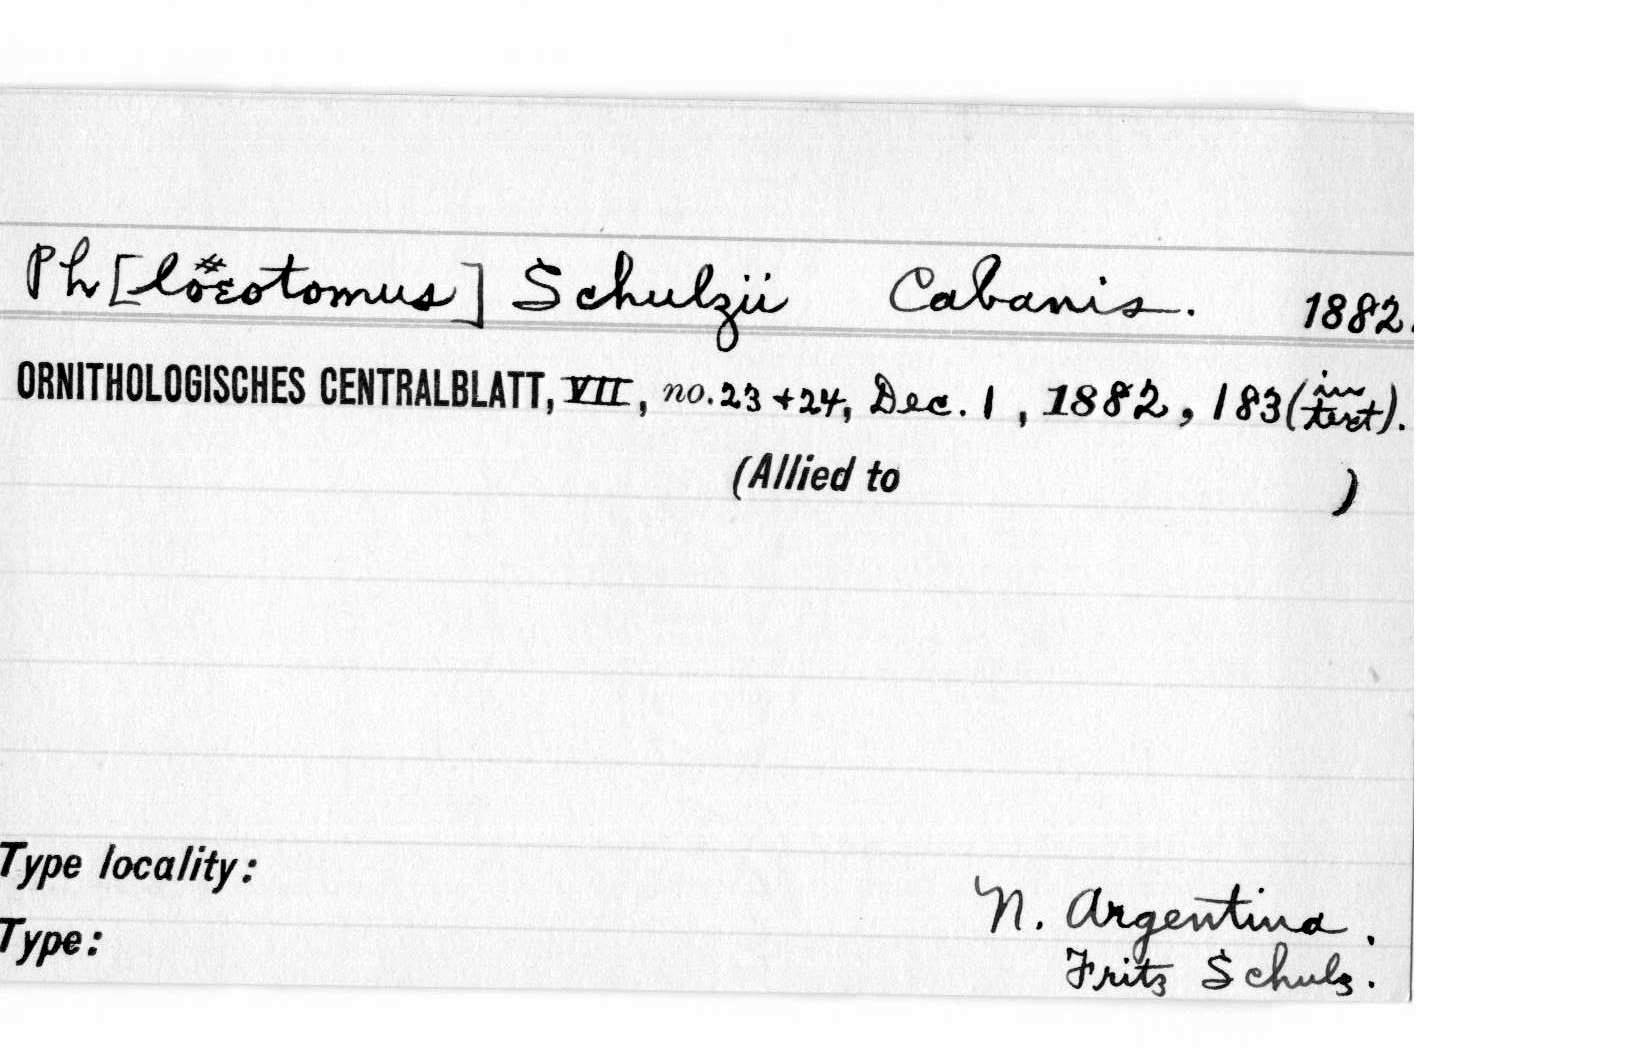 Ph[löeotomus] Schulzii Cabanis. 1882.
ORNITHOLOGISCHES CENTRALBLATT, VII, no. 23 + 24, Dec. 1, 1882, 183 (in text).
(Allied to )
Type locality: N. Argentina.
Type: Fritz Schulz.